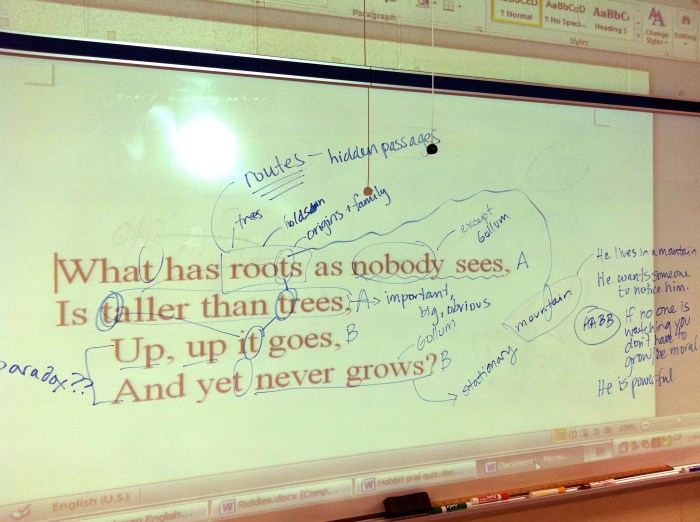 Paragraph
AaBbCcD AaBbC
1 Normal 1 No Spaci... Heading 1
Change Styles
Editing
Styles
routes - hidden passages
trees
origins + family
except Gollum
What has roots as nobody sees, A
Is taller than trees, A → important, big, obvious
Up, up it goes, B
Gollum
And yet never grows? B
stationary
mountain
paradox??
He lives in a mountain
He wants someone to notice him.
AABB
If no one is watching you don't have to grow/be moral
He is powerful
100%
English (U.S.)
Riddles.docx [Comp...
Hobbit oral quiz.doc...
Document... Micros...